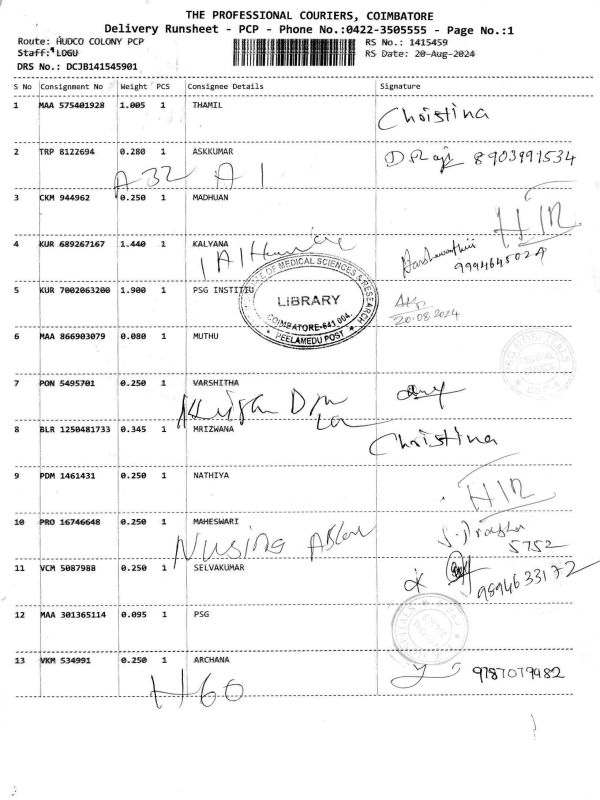 THE PROFESSIONAL COURIERS, COIMBATORE
Delivery Runsheet - PCP - Phone No.:0422-3505555 - Page No.:1
Route: HUDCO COLONY PCP
RS No.: 1415459
Staff: LOGU
RS Date: 20-Aug-2024
DRS No.: DCJB141545901
S No Consignment No Weight PCS Consignee Details Signature
1 MAA 575401928 1.005 1 THAMIL
Christina
2 TRP 8122694 0.280 1 ASKKUMAR
8903991534
A32 A1
3 CKM 944962 0.250 1 MADHUAN
4 KUR 689267167 1.440 1 KALYANA
9994645024
5 KUR 7002063200 1.900 1 PSG INSTITU
OF MEDICAL SCIENCES & RESEARCH
LIBRARY
COIMBATORE-641 004.
* PEELAMEDU POST *
20.08.2024
6 MAA 866903079 0.080 1 MUTHU
7 PON 5495701 0.250 1 VARSHITHA
8 BLR 1250481733 0.345 1 MRIZWANA
Christina
9 PDM 1461431 0.250 1 NATHIYA
10 PRO 16746648 0.250 1 MAHESWARI
5752
11 VCM 5087988 0.250 1 SELVAKUMAR
9894633172
12 MAA 301365114 0.095 1 PSG
13 VKM 534991 0.250 1 ARCHANA
9787079982
H60